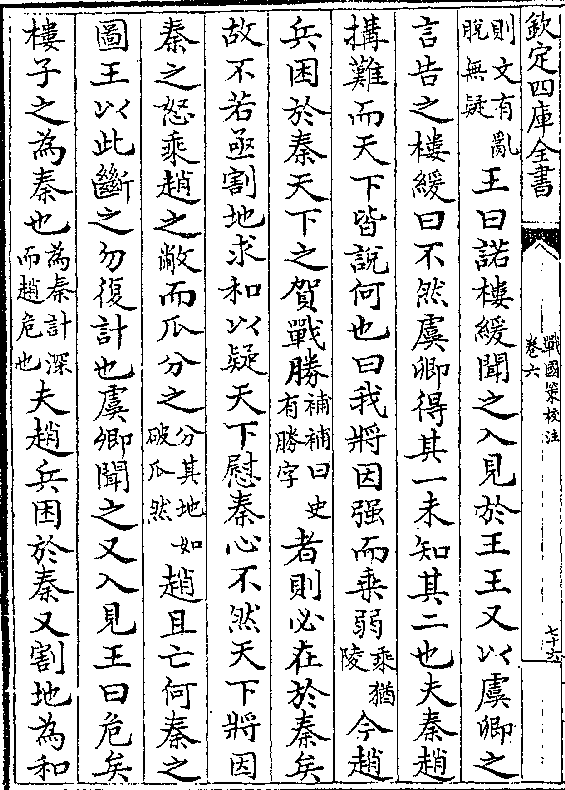 欽定四庫全書
戰國策校注
卷六
七十六
則文有亂
脫無疑
王曰諾樓緩聞之入見於王王又以虞卿之
言告之樓緩曰不然虞卿得其一未知其二也夫秦趙
搆難而天下皆說何也曰我將因强而乘弱
乘猶
陵
今趙
兵困於秦天下之賀戰勝
補補曰史
有勝字
者則必在於秦矣
故不若亟割地求和以疑天下慰秦心不然天下將因
秦之怒乘趙之敝而瓜分之
分其地如
破瓜然
趙且亡何秦之
圖王以此斷之勿復計也虞卿聞之又入見王曰危矣
樓子之為秦也
為秦計深
而趙危也
夫趙兵困於秦又割地為和